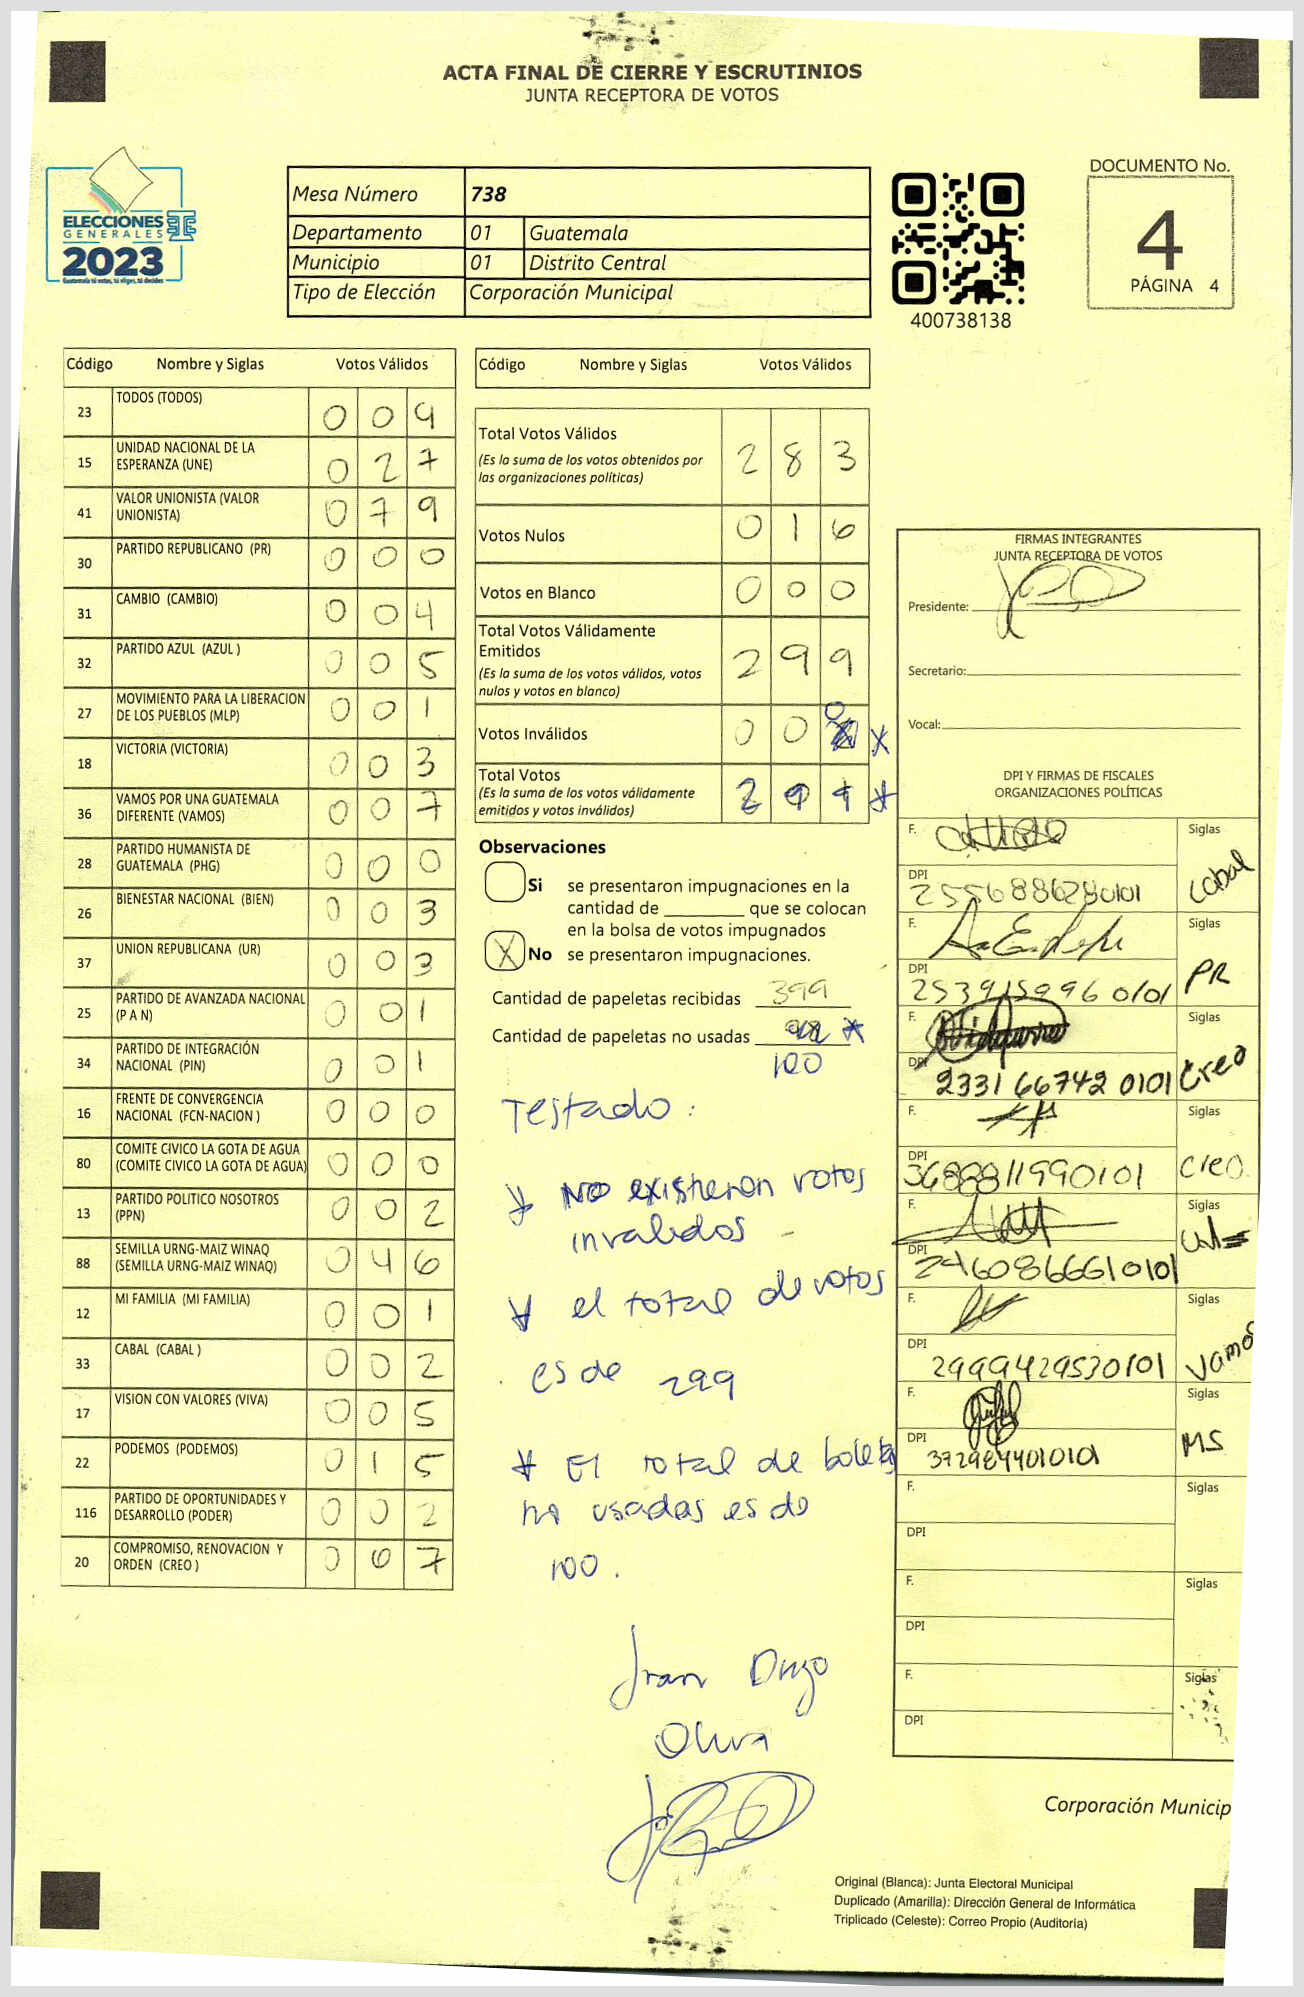 ACTA FINAL DE CIERRE Y ESCRUTINIOS
JUNTA RECEPTORA DE VOTOS
ELECCIONES
GENERALES
2023
Guatemala tú votas, tú eliges, tú decides
Mesa Número 738
Departamento 01 Guatemala
Municipio 01 Distrito Central
Tipo de Elección Corporación Municipal
400738138
DOCUMENTO No.
4
PÁGINA 4
Código Nombre y Siglas Votos Válidos
23 TODOS (TODOS) 0 0 9
15 UNIDAD NACIONAL DE LA ESPERANZA (UNE) 0 2 7
41 VALOR UNIONISTA (VALOR UNIONISTA) 0 7 9
30 PARTIDO REPUBLICANO (PR) 0 0 0
31 CAMBIO (CAMBIO) 0 0 4
32 PARTIDO AZUL (AZUL ) 0 0 5
27 MOVIMIENTO PARA LA LIBERACION DE LOS PUEBLOS (MLP) 0 0 1
18 VICTORIA (VICTORIA) 0 0 3
36 VAMOS POR UNA GUATEMALA DIFERENTE (VAMOS) 0 0 7
28 PARTIDO HUMANISTA DE GUATEMALA (PHG) 0 0 0
26 BIENESTAR NACIONAL (BIEN) 0 0 3
37 UNION REPUBLICANA (UR) 0 0 3
25 PARTIDO DE AVANZADA NACIONAL (P A N) 0 0 1
34 PARTIDO DE INTEGRACIÓN NACIONAL (PIN) 0 0 1
16 FRENTE DE CONVERGENCIA NACIONAL (FCN-NACION ) 0 0 0
80 COMITE CIVICO LA GOTA DE AGUA (COMITE CIVICO LA GOTA DE AGUA) 0 0 0
13 PARTIDO POLITICO NOSOTROS (PPN) 0 0 2
88 SEMILLA URNG-MAIZ WINAQ (SEMILLA URNG-MAIZ WINAQ) 0 4 6
12 MI FAMILIA (MI FAMILIA) 0 0 1
33 CABAL (CABAL ) 0 0 2
17 VISION CON VALORES (VIVA) 0 0 5
22 PODEMOS (PODEMOS) 0 1 5
116 PARTIDO DE OPORTUNIDADES Y DESARROLLO (PODER) 0 0 2
20 COMPROMISO, RENOVACION Y ORDEN (CREO ) 0 6 7
Código Nombre y Siglas Votos Válidos
Total Votos Válidos 2 8 3
(Es la suma de los votos obtenidos por
las organizaciones políticas)
Votos Nulos 0 1 6
Votos en Blanco 0 0 0
Total Votos Válidamente
Emitidos 2 9 9
(Es la suma de los votos válidos, votos
nulos y votos en blanco)
Votos Inválidos 0 0 0 *
Total Votos 2 9 9 *
(Es la suma de los votos válidamente
emitidos y votos inválidos)
Observaciones
Si se presentaron impugnaciones en la
cantidad de ________ que se colocan
en la bolsa de votos impugnados
X No se presentaron impugnaciones.
Cantidad de papeletas recibidas 399
Cantidad de papeletas no usadas *
100
Testado:
* NO existieron votos
invalidos
* el total de votos
es de 299
* El total de boletas
no usadas es de
100.
Oliva
FIRMAS INTEGRANTES
JUNTA RECEPTORA DE VOTOS
Presidente:
Secretario:
Vocal:
DPI Y FIRMAS DE FISCALES
ORGANIZACIONES POLÍTICAS
F. Siglas Cabal
DPI 2556886280101
F. Siglas PR
DPI 2539159960101
F. Siglas Creo
DPI 2331 66742 0101
F. Siglas Creo
DPI 3688811990101
F. Siglas
DPI 2460866610101
F. Siglas Vamos
DPI 2999429530101
F. Siglas MS
DPI 372984401010
F. Siglas
DPI
F. Siglas
DPI
F. Siglas
DPI
Corporación Municip
Original (Blanca): Junta Electoral Municipal
Duplicado (Amarilla): Dirección General de Informática
Triplicado (Celeste): Correo Propio (Auditoría)